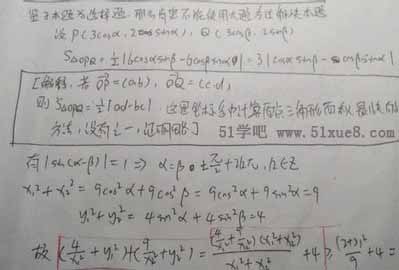 鉴于本题为选择题，那么自然不能使用大题方法解决本题
设 P(3cosα, 2sinα), Q(3cosβ, 2sinβ)
S△OPQ = ½|6cosαsinβ - 6cosβsinα| = 3|cosαsinβ - cosβsinα|
[解释: 若 OP = (a,b), OQ = (c,d),
则 S△OPQ = ½|ad-bc|. 这是坐标系中计算三角形面积最快的
方法, 没有之一, 证明略]
51学吧 www.51xue8.com
有 |sin(α-β)| = 1 ⇒ α = β ± π/2 + 2kπ, k∈Z
x₁² + x₂² = 9cos²α + 9cos²β = 9cos²α + 9sin²α = 9
y₁² + y₂² = 4sin²α + 4sin²β = 4
故 (4/x₁² + y₁²) + (9/x₂² + y₂²) = (4/x₁² + 9/x₂²)(x₁² + x₂²)/(x₁² + x₂²) + 4 ≥ (2+3)²/9 + 4 =